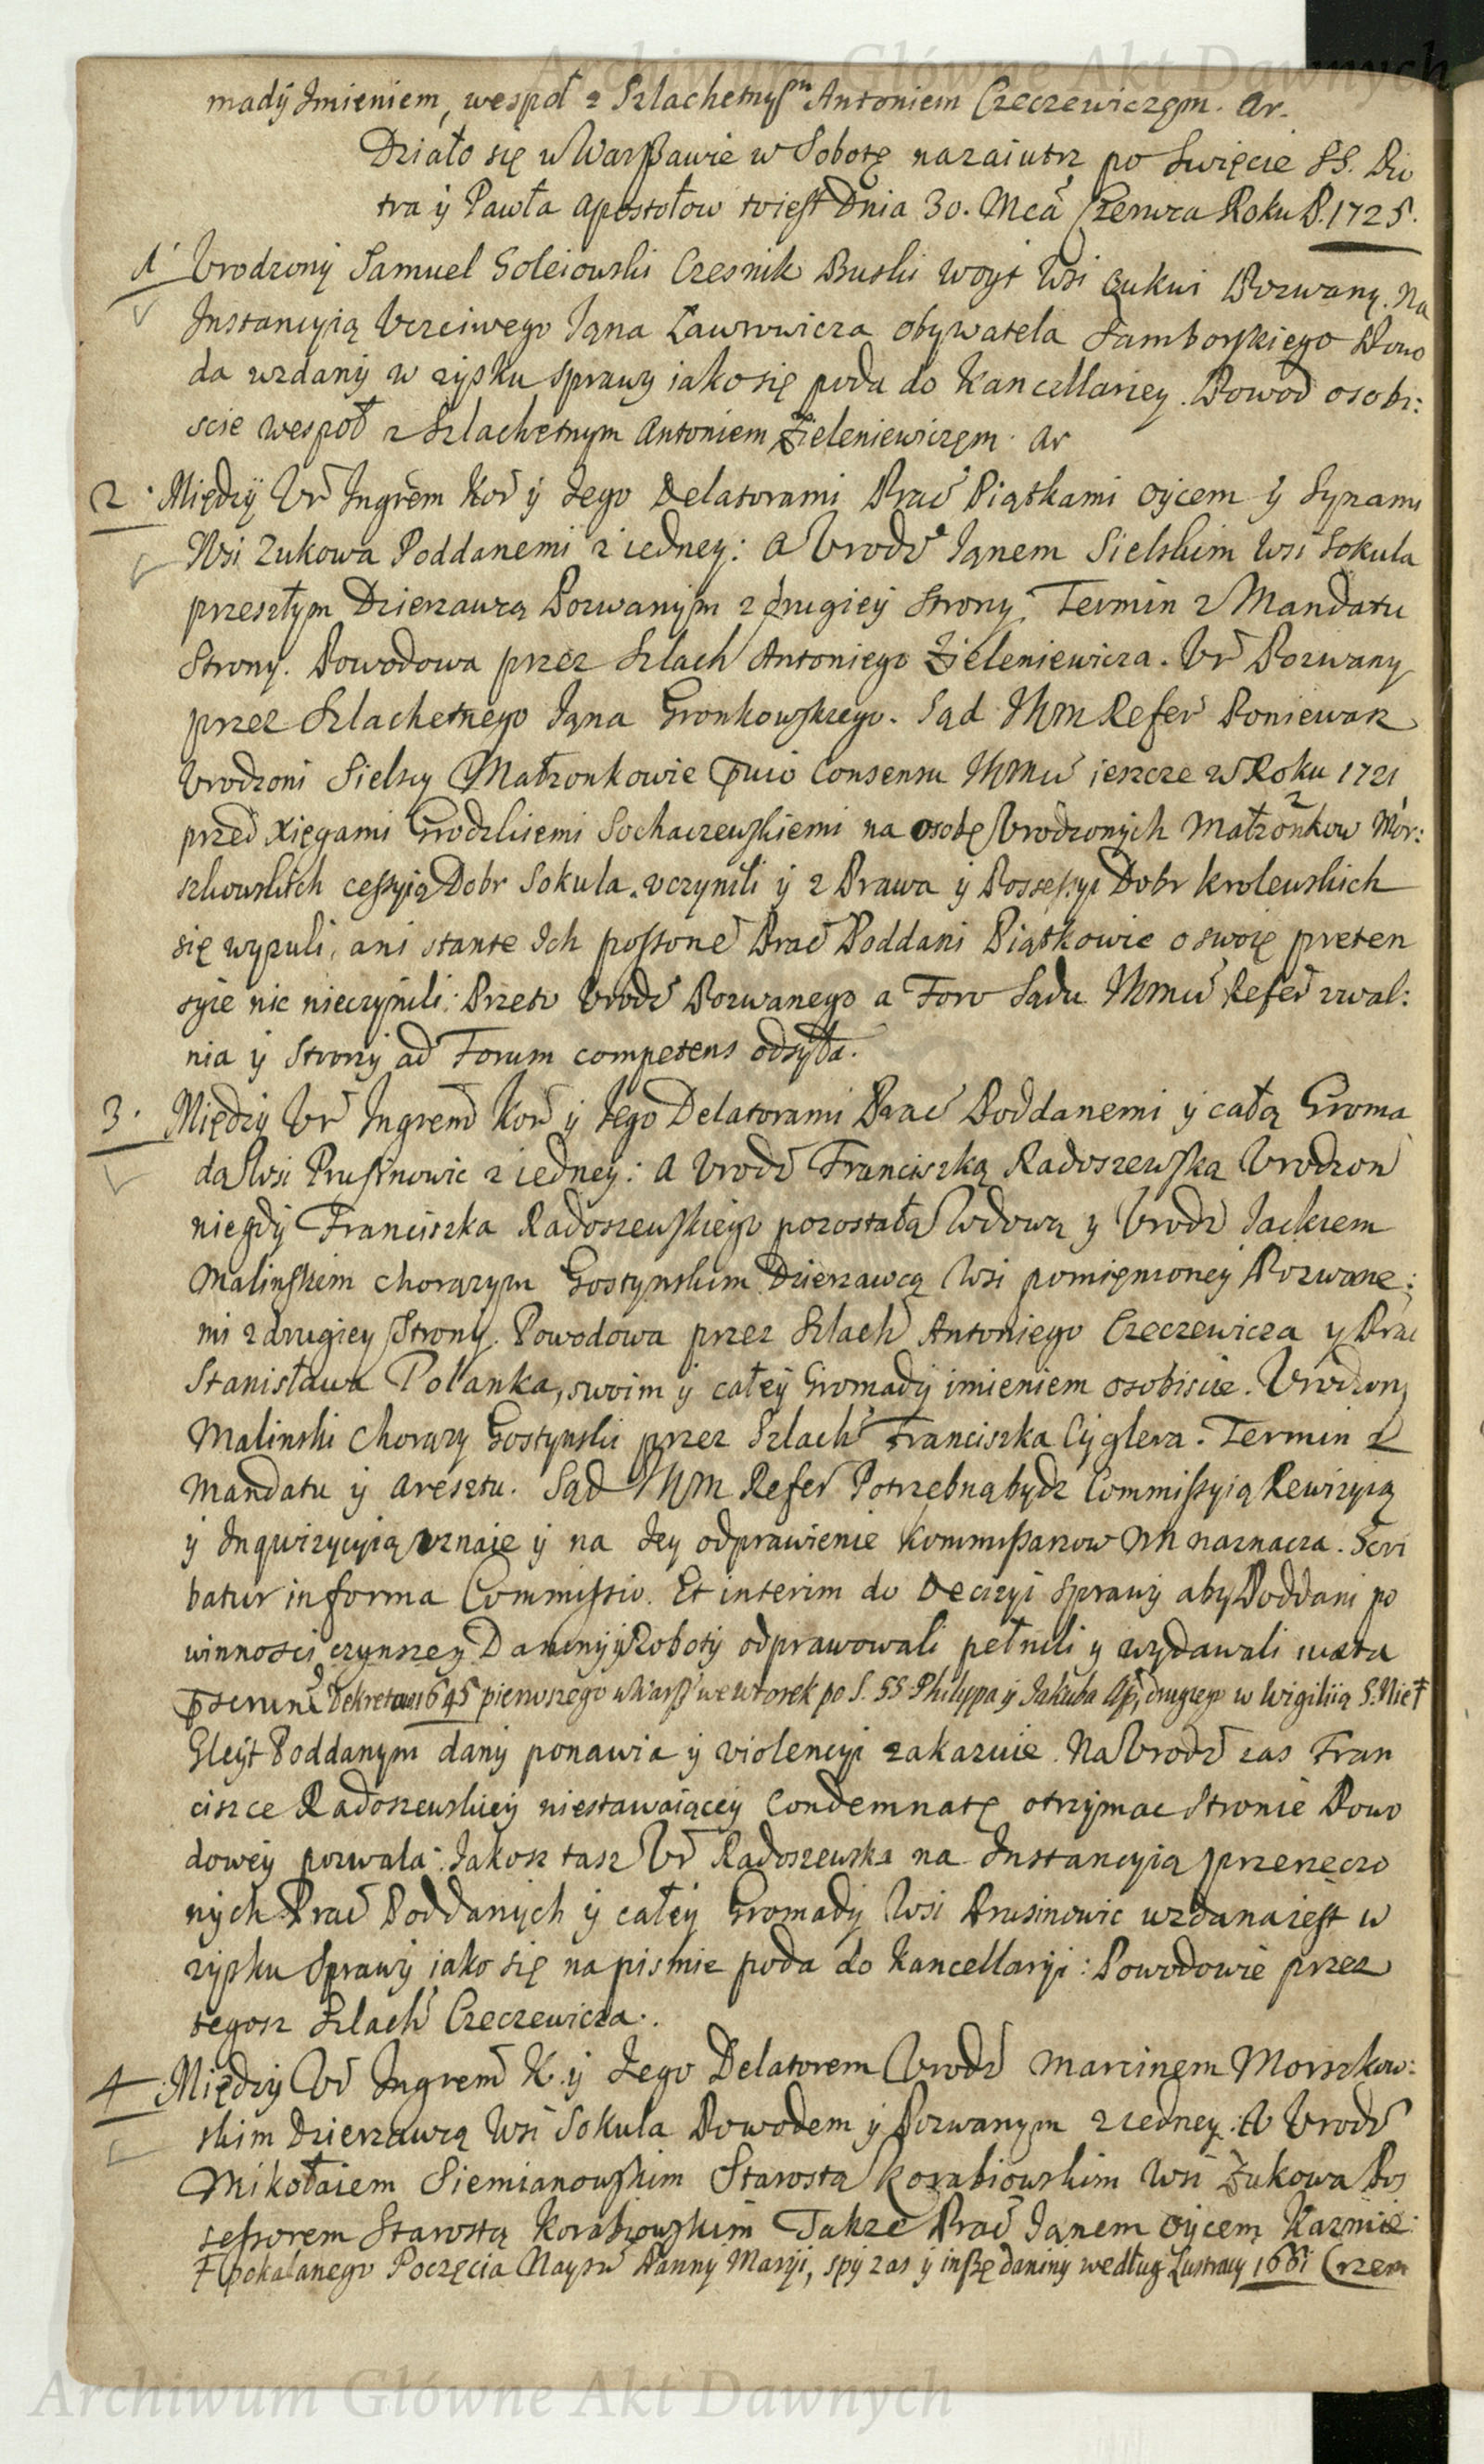 Archiwum Główne Akt Dawnych
mady Imieniem, wespoł z Szlachetnym Antoniem Czeczewiczęm. Ar.
Działo się w Warszawie w Sobotę nazaiutrz po Swięcie SS. Pio
tra y Pawła Apostołow to iest Dnia 30. Mca Czerwca Roku P. 1725.
1 Vrodzony Samuel Soleiowski Czesnik Buski Woyt Wsi Pozwany. Na
Instancyią Vczciwego Jąna Ławrowicza obywatela Samborskiego Powo
da wzdany w zysku sprawy iako się poda do Kancellariey. Powod osobi:
scie wespoł z Szlachetnym Antoniem Zieleniewiczęm. Ar
2. Między Vr Ingrem Kor y Jego Delatorami Prac Piątkami oycem y Synami
Wsi Zukowa Poddanemi z iedney: a Vrodz Jąnem Sielskim Wsi Sokula
przeszłym Dzierzawcą Pozwanym z drugiey strony. Termin z Mandatu
Strony. Powodowa przez Szlach Antoniego Zieleniewicza. Vr Pozwany
przez Szlachetnego Jąna Gronkowskiego. Sąd JKM Refer Poniewaz
Vrodzoni Sielscy Małzonkowie Consensu JKMci ieszcze w Roku 1721
przed Xięgami Grodzkiemi Sochaczewskiemi na osobę Vrodzonych Małzonkow Mor:
szkowskich cessyią Dobr Sokula vczynili y z Prawa y Possessyi Dobr krolewskich
się wyzuli, ani stante Ich possone Prac Poddani Piątkowie o swoię preten
syie nic nieczynili: Przeto Vrodz Pozwanego a Foro Sądu JKMci Refer zwal:
nia y Strony ad Forum competens odsyła.
3. Między Vr Ingrem Kor y Jego Delatorami Prac Poddanemi y całą Groma
dą Wsi Prusinowic z iedney: a Vrodz Franciszką Radoszewską Vrodzon
niegdy Franciszka Radoszewskiego pozostałą Wdową y Vrodz Jackiem
Malinskim chorązym Gostynskim Dzierzawcą Wsi pomięnioney Pozwane:
mi z drugiey Strony. Powodowa przez Szlach Antoniego Czeczewicza y Prac
Stanisława Polanka, swoim y całey Gromady imieniem osobiscie. Vrodzony
Malinski Chorązy Gostynski przez Szlach Franciszka Cyglera. Termin z
Mandatu y Aresztu. Sąd JKM Refer Potrzebną bydz Commissyią Rewizyią
y Inqwizycyią vznaie y na Jey odprawienie Kommissarzow Nn naznacza. Scri
batur in forma Commissio. Et interim do Decizyi sprawy aby Poddani po
winnosci czynszey Daniny y Roboty odprawowali pełnili y wydawali iuxta
Dekretow 1645 pierwszego w Warsz we wtorek po S. SS Philippa y Jakuba Ap, drugiego w Wigilią S. Nie‡
Gleyt Poddanym dany ponawia y violencyi zakazuie. Na Vrodz zas Fran
ciszce Radoszewskiey niestawaiącey Condemnatę otrzymac stronie Powo
dowey pozwala: Jakosz tasz Vr Radoszewska na Instancyią przerzeczo
nych Prac Poddanych y całey Gromady Wsi Prusinowic wzdana iest w
zysku sprawy iako się na pismie poda do Kancellaryi: Powodowie przez
tegosz Szlach Czeczewicza.
4 Między Vr Ingrem K. y Jego Delatorem Vrodz Marcinem Morszkow:
skim Dzierzawcą Wsi Sokula Powodem y Pozwanym z iedney: A Vrodz
Mikołaiem Siemianowskim Starostą Korabiowskim Wsi Zukowa Pos
sessorem Starostą Korabiowskim Takze Prac Janem oycem Kazmie:
‡ pokalanego Poczęcia Nayśw Panny Maryi, spy zas y insze daniny według Lustracy 1661 Czem
Archiwum Główne Akt Dawnych